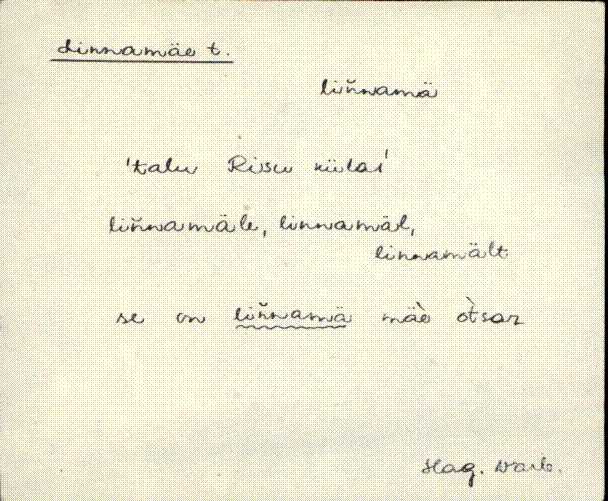 Linnamäe t.
liňnamä
'talu Risu külas'
liňnamäle, linnamäl,
linnamält
se on liňnamä mäè òtsar
Hag.